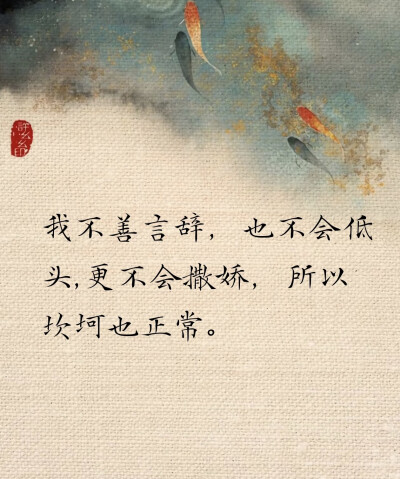 我不善言辞，也不会低
头,更不会撒娇，所以
坎坷也正常。